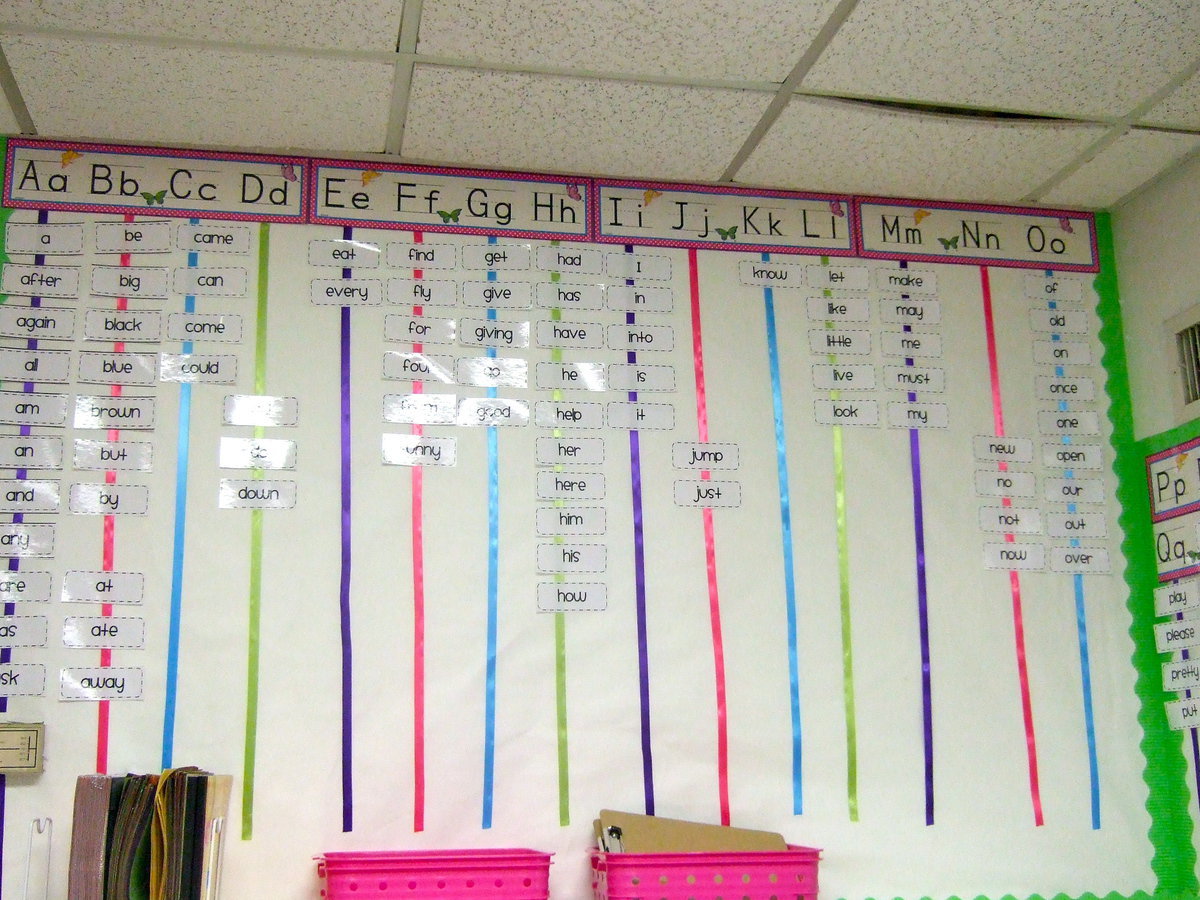 Aa Bb Cc Dd
Ee Ff Gg Hh
Ii Jj Kk Ll
Mm Nn Oo
a
after
again
all
am
an
and
any
are
as
be
big
black
blue
brown
but
by
at
ate
away
came
can
come
could
do
down
eat
every
find
fly
for
four
from
get
give
giving
go
good
had
has
have
he
help
her
here
him
his
how
I
in
into
is
it
jump
just
know
let
like
little
live
look
make
may
me
must
my
new
no
not
now
of
old
on
once
one
open
our
out
over
Pp
Qq
play
please
pretty
put